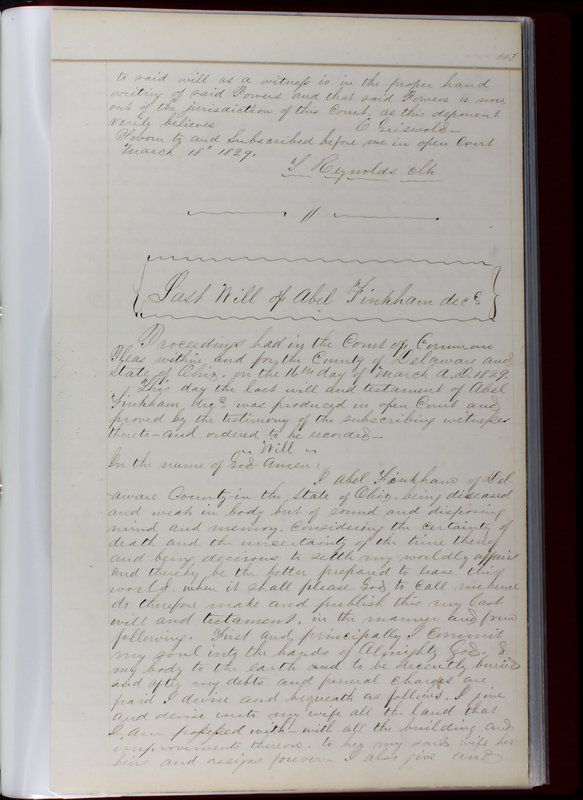 103
to said will as a witness is in the proper hand
writing of said Powers and that said Powers is now
out of the jurisdiction of this Court, as this deponent
verily believes C Griswold
Sworn to and Subscribed before me in open Court
March 18th 1829.
T Reynolds Clk
Last Will of Abel Tinkham decd
Proceedings had in the Court of Common
Pleas within and for the County of Delaware and
State of Ohio, on the 16th day of March A.D. 1829.
This day the last will and testament of Abel
Tinkham decd was produced in open Court and
proved by the testimony of the subscribing witnesses
thereto - and ordered to be recorded -
" Will "
In the name of God Amen:
I Abel Tinkham of Del
aware County in the State of Ohio, being diseased
and weak in body but of sound and disposing
mind and memory, considering the certainty of
death and the uncertainty of the time thereof
and being desirous to settle my worldly affairs
and thereby be the better prepared to leave this
world, when it shall please God to call me hence
do therefore make and publish this my last
will and testament, in the manner and form
following. First and principally I commit
my soul into the hands of Almighty God, &
my body to the earth and to be decently buried
and after my debts and funeral charges are
paid I devise and bequeath as follows. I give
and devise unto my wife all the land that
I am possessed with - with all the building and
improvements thereon, to her my said wife her
heirs and assigns forever - I also give and